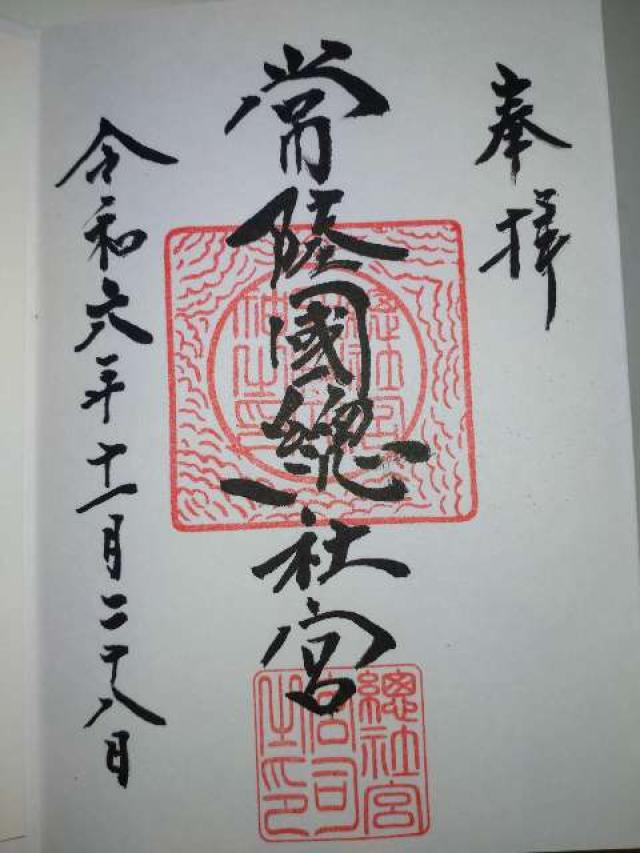 奉拝
常陸國總社宮
總社宮
宮司
之印
令和六年十一月二十八日